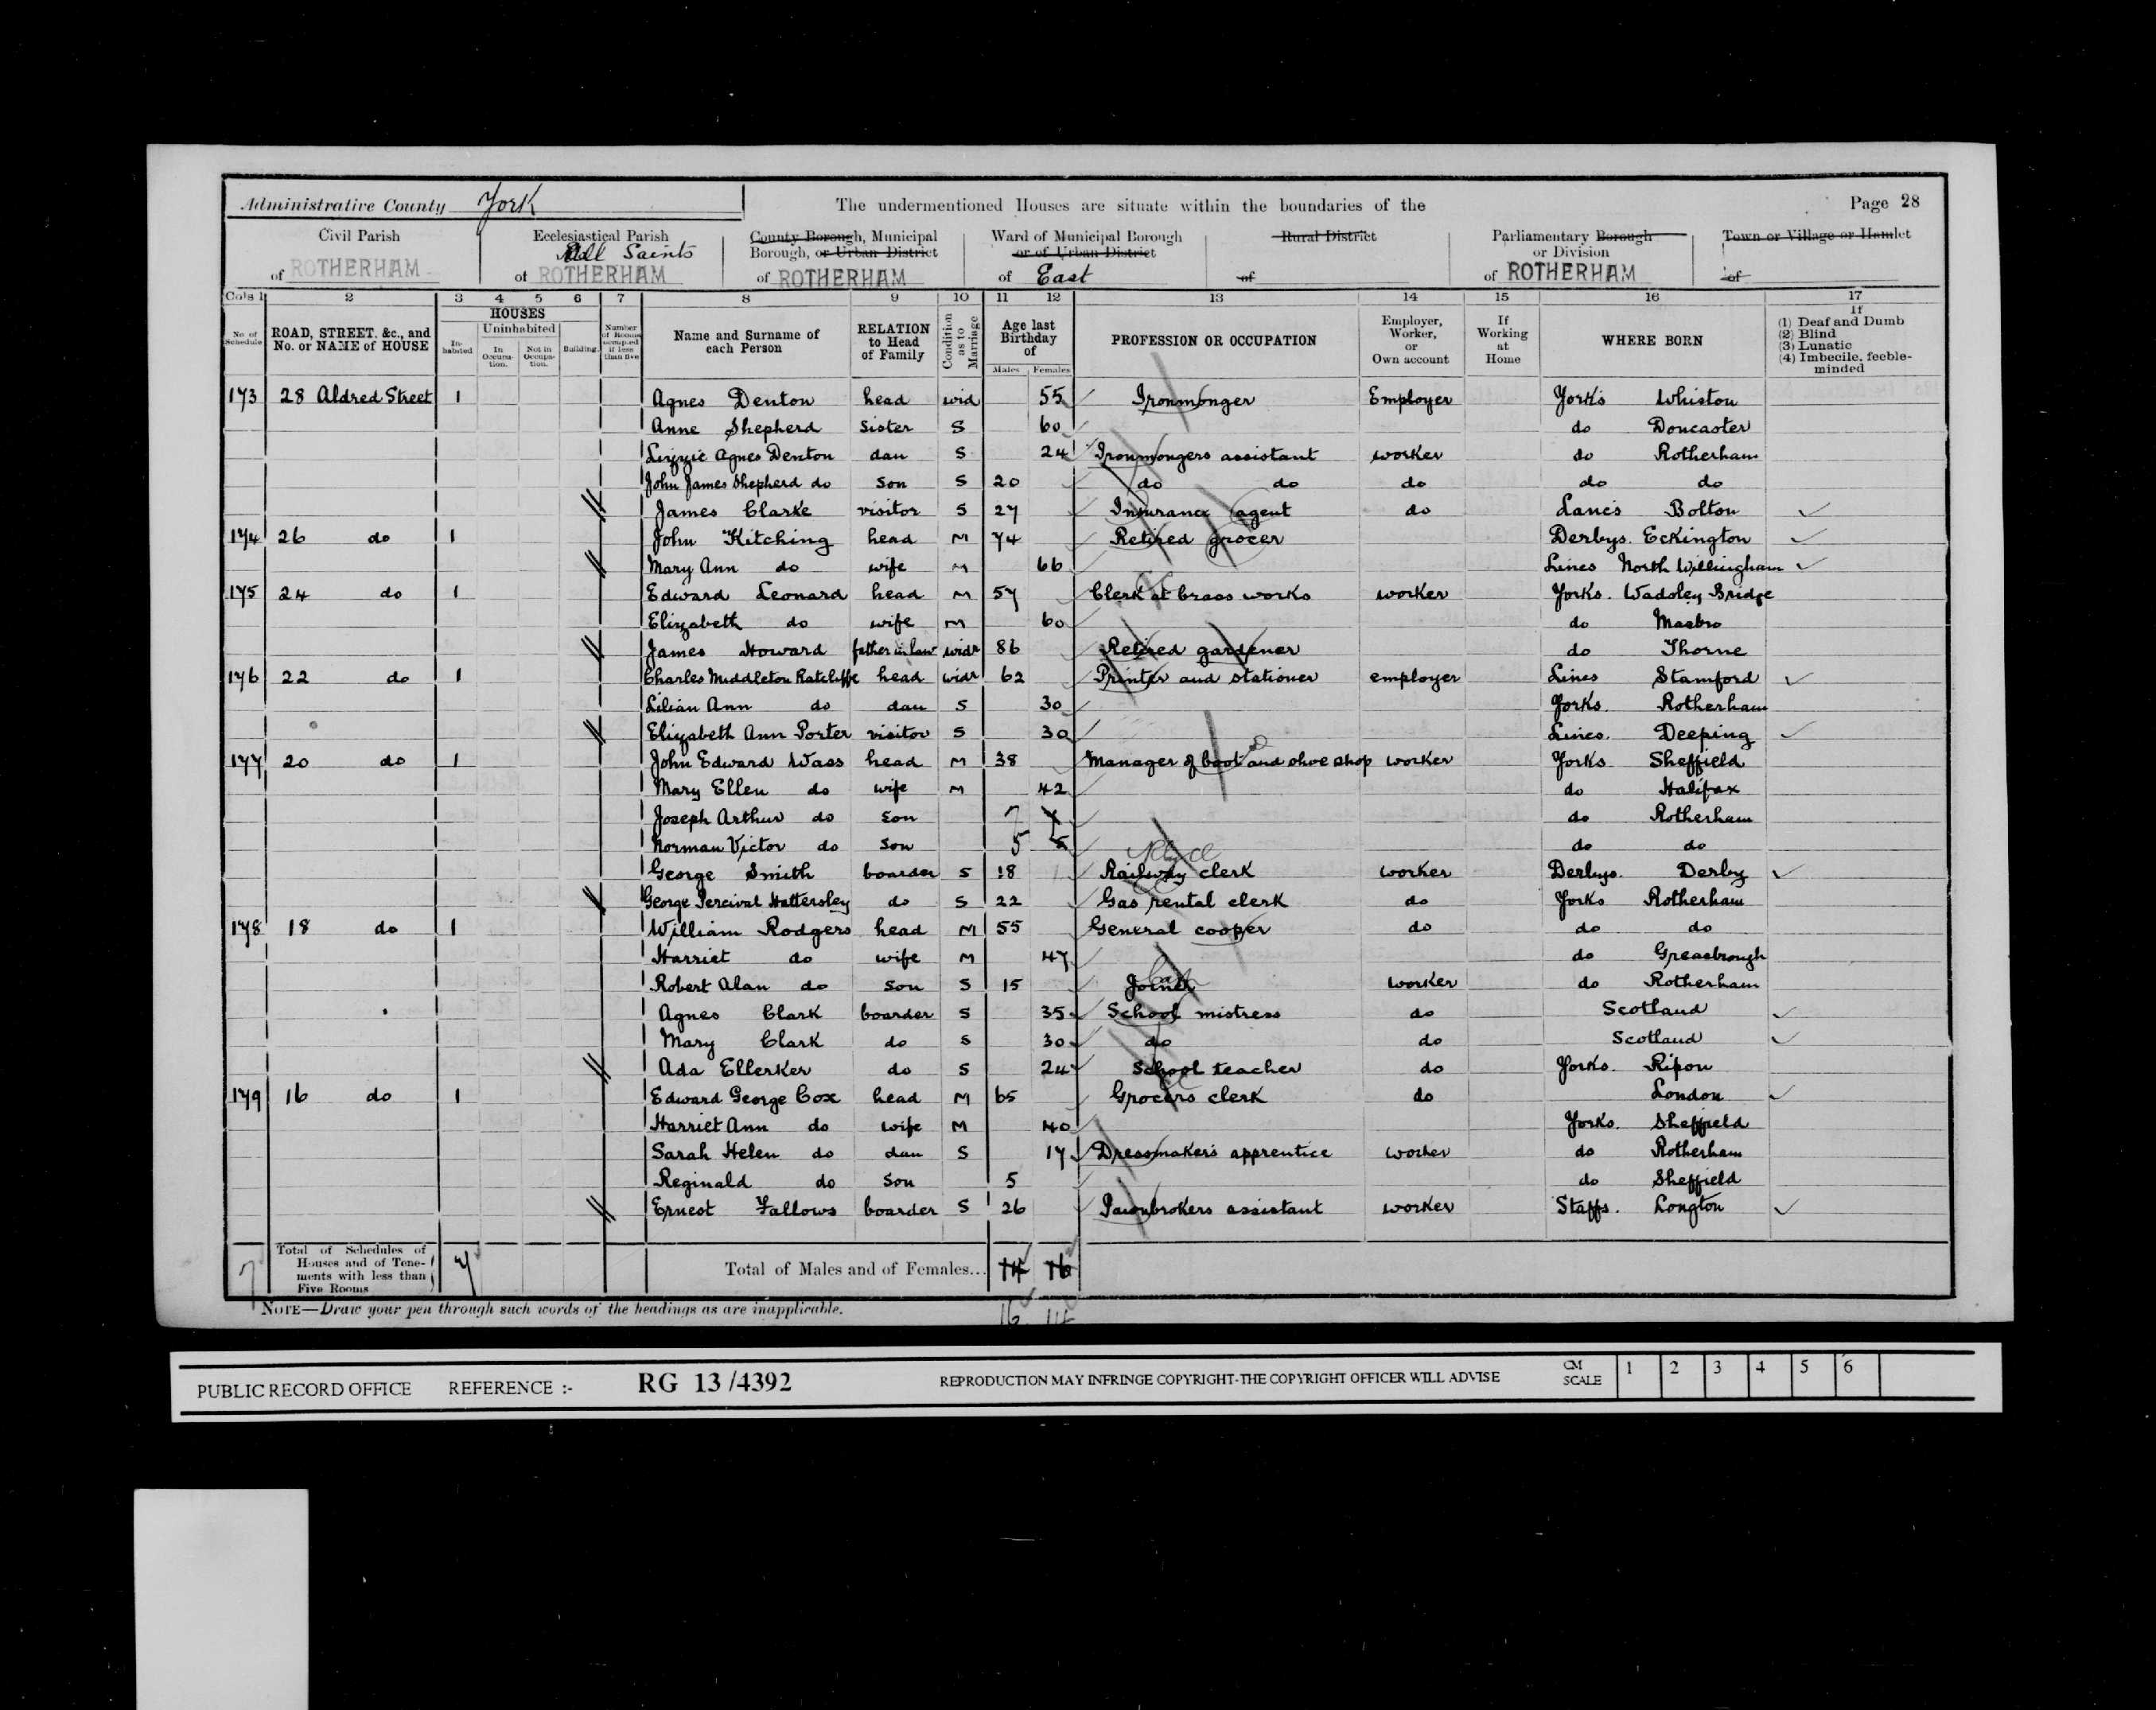 Administrative County York The undermentioned Houses are situate within the boundaries of the Page 28
Civil Parish of ROTHERHAM
Ecclesiastical Parish All Saints of ROTHERHAM
County Borough, Municipal Borough, or Urban District of ROTHERHAM
Ward of Municipal Borough or of Urban District of East
Rural District of
Parliamentary Borough or Division of ROTHERHAM
Town or Village or Hamlet of
Cols 1 2 3 4 5 6 7 8 9 10 11 12 13 14 15 16 17
No. of Schedule
ROAD, STREET, &c., and No. or NAME of HOUSE
HOUSES
Inhabited
Uninhabited
In Occupation.
Not in Occupation.
Building.
Number of Rooms occupied if less than five
Name and Surname of each Person
RELATION to Head of Family
Condition as to Marriage
Age last Birthday of
Males Females
PROFESSION OR OCCUPATION
Employer, Worker, or Own account
If Working at Home
WHERE BORN
If
(1) Deaf and Dumb
(2) Blind
(3) Lunatic
(4) Imbecile, feeble-minded
173 28 Aldred Street 1 Agnes Denton head wid 55 Ironmonger Employer Yorks Whiston
Anne Shepherd Sister S 60 do Doncaster
Lizzie Agnes Denton dau S 24 Ironmongers assistant worker do Rotherham
John James Shepherd do Son S 20 do do do do do
James Clarke visitor S 27 Insurance agent do Lancs Bolton
174 26 do 1 John Kitching head M 74 Retired grocer Derbys. Eckington
Mary Ann do wife M 66 Lincs North Willingham
175 24 do 1 Edward Leonard head M 57 Clerk at brass works worker Yorks. Wadsley Bridge
Elizabeth do wife M 60 do Masbro
James Howard father in law widr 86 Retired gardener do Thorne
176 22 do 1 Charles Middleton Ratcliffe head widr 62 Printer and stationer employer Lincs Stamford
Lilian Ann do dau S 30 Yorks. Rotherham
Elizabeth Ann Porter visitor S 30 Lincs. Deeping
177 20 do 1 John Edward Wass head M 38 Manager of boot and shoe shop worker Yorks Sheffield
Mary Ellen do wife M 42 do Halifax
Joseph Arthur do son 7 7 do Rotherham
Norman Victor do son 5 5 do do
George Smith boarder S 18 Railway clerk worker Derbys. Derby
George Percival Hattersley do S 22 Gas rental clerk do Yorks Rotherham
178 18 do 1 William Rodgers head M 55 General cooper do do do
Harriet do wife M 47 do Greasbrough
Robert Alan do son S 15 Joiner worker do Rotherham
Agnes Clark boarder S 35 School mistress do Scotland
Mary Clark do S 30 do do Scotland
Ada Ellerker do S 24 School teacher do Yorks. Ripon
179 16 do 1 Edward George Cox head M 65 Grocers clerk do London
Harriet Ann do wife M 40 Yorks. Sheffield
Sarah Helen do dau S 17 Dressmakers apprentice worker do Rotherham
Reginald do son 5 do Sheffield
Ernest Fallows boarder S 26 Pawnbrokers assistant worker Staffs. Longton
7 Total of Schedules of Houses and of Tenements with less than Five Rooms 7 Total of Males and of Females... 14 16
NOTE—Draw your pen through such words of the headings as are inapplicable. 16 14
PUBLIC RECORD OFFICE REFERENCE :- RG 13 /4392 REPRODUCTION MAY INFRINGE COPYRIGHT-THE COPYRIGHT OFFICER WILL ADVISE CM SCALE 1 2 3 4 5 6